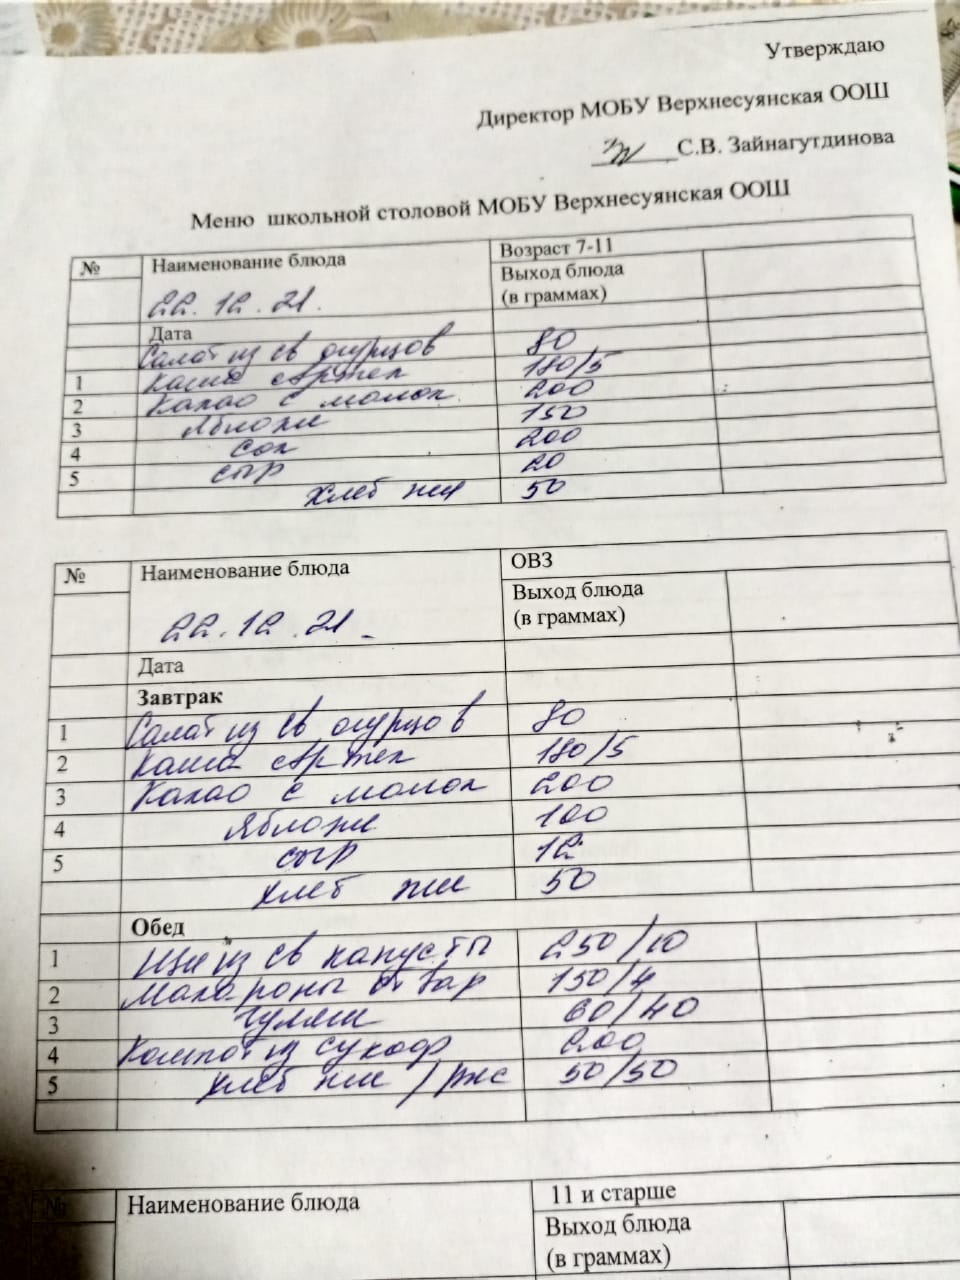 Утверждаю
Директор МОБУ Верхнесуянская ООШ
С.В. Зайнагутдинова
Меню школьной столовой МОБУ Верхнесуянская ООШ
№ Наименование блюда Возраст 7-11
22.12.21. Выход блюда
(в граммах)
Дата
Салат из св огурцов 80
1 Каша 180/5
2 Какао с молок. 200
3 Яблоки 150
4 сок 200
5 сыр 20
хлеб пш 50
№ Наименование блюда ОВЗ
22.12.21. Выход блюда
(в граммах)
Дата
Завтрак
1 Салат из св огурцов 80
2 Каша 180/5
3 Какао с молок 200
4 Яблоки 100
5 сыр 12
хлеб пш 50
Обед
1 Щи из св капусты 250/10
2 Макароны отвар 150/4
3 Гуляш 60/40
4 Компот из сухофр 200
5 хлеб пш / рж 50/50
№ Наименование блюда 11 и старше
Выход блюда
(в граммах)